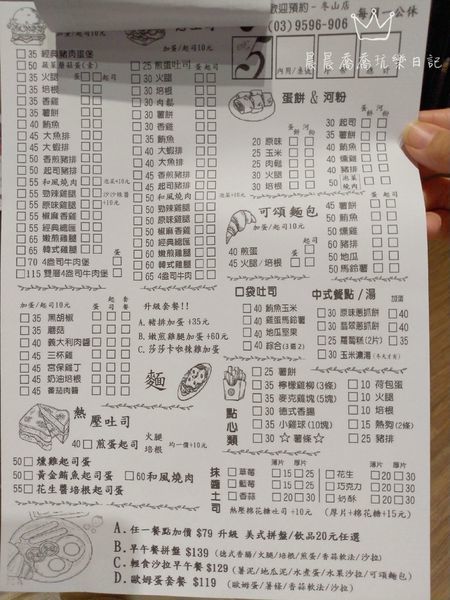 歡迎預約 - 冬山店
(03)9596-906
每周一公休
晨晨喬喬玩樂日記
5
加蛋/起司10元
35 經典豬肉蛋堡
50 蔬菜蘑菇蛋(素)
35 火腿
35 培根
35 香雞
35 薯餅
40 鮪魚
45 大魚排
45 大蝦排
50 香煎豬排
50 起司豬排
55 和風燒肉
55 勁辣雞腿
55 原味雞腿
55 椒麻香雞
55 經典總匯
60 嫩煎雞腿
60 韓式雞腿
70 4盎司牛肉堡
115 雙層4盎司牛肉堡
加蛋/起司10元
25 煎蛋吐司
30 火腿
30 培根
30 肉鬆
30 薯餅
30 香雞
35 鮪魚
40 大魚排
40 大蝦排
45 香煎豬排
45 起司豬排
50 和風燒肉
50 勁辣雞腿
50 原味雞腿
50 經典總匯
65 4盎司牛肉
蛋餅 & 河粉
20 原味
25 玉米
25 肉鬆
30 火腿
30 培根
30 起司
30 薯餅
35 鮪魚
40 燻雞
40 豬排
50 泡菜燒肉
可頌麵包
起司
40 煎蛋
45 火腿/培根
45 薯餅
50 鮪魚
50 燻雞
60 豬排
50 地瓜
50 馬鈴薯
加蛋/起司+10元
35 黑胡椒
35 蘑菇
40 義大利肉醬
45 三杯雞
45 宮保雞丁
45 奶油培根
45 蕃茄肉醬
升級套餐!!
A.豬排加蛋 +35元
B.嫩煎雞腿加蛋+60元
C.莎莎卡啦辣雞加蛋
麵
口袋吐司
40 鮪魚玉米
40 雞蛋馬鈴薯
40 地瓜堅果
40 綜合(3選2)
中式餐點/湯
加蛋
30 原味蔥抓餅 40
30 翡翠蔥抓餅 40
25 蘿蔔糕(2片) 35
30 玉米濃湯(冬天才有)
點心類
25 薯餅
35 檸檬雞柳(3條)
35 麥克雞塊(5塊)
30 德式香腸
35 小雞球(10塊)
30 ☆薯條☆
10 荷包蛋
10 火腿
10 培根
15 熱狗(2條)
25 豬排
熱壓吐司
40 煎蛋起司
火腿
培根
均一價+10元
50 燻雞起司蛋
50 黃金鮪魚起司蛋
60 和風燒肉
55 花生醬培根起司蛋
抹醬土司
薄片 厚片
草莓 15 25
藍莓 15 25
香蒜 20 30
薄片 厚片
花生 20 30
巧克力 20 30
奶酥 20 30
熱壓棉花糖吐司+10元 (厚片+棉花糖+15元)
A. 任一餐點加價 $79 升級 美式拼盤/飲品20元任選
B. 早午餐拼盤 $139 (德式香腸/火腿/培根/煎蛋/香蒜軟法/沙拉)
C. 輕食沙拉早午餐 $129 (薯泥/地瓜泥/水煮蛋/水果沙拉/可頌麵包)
D. 歐姆蛋套餐 $119 (歐姆蛋/薯條/香蒜軟法/沙拉)